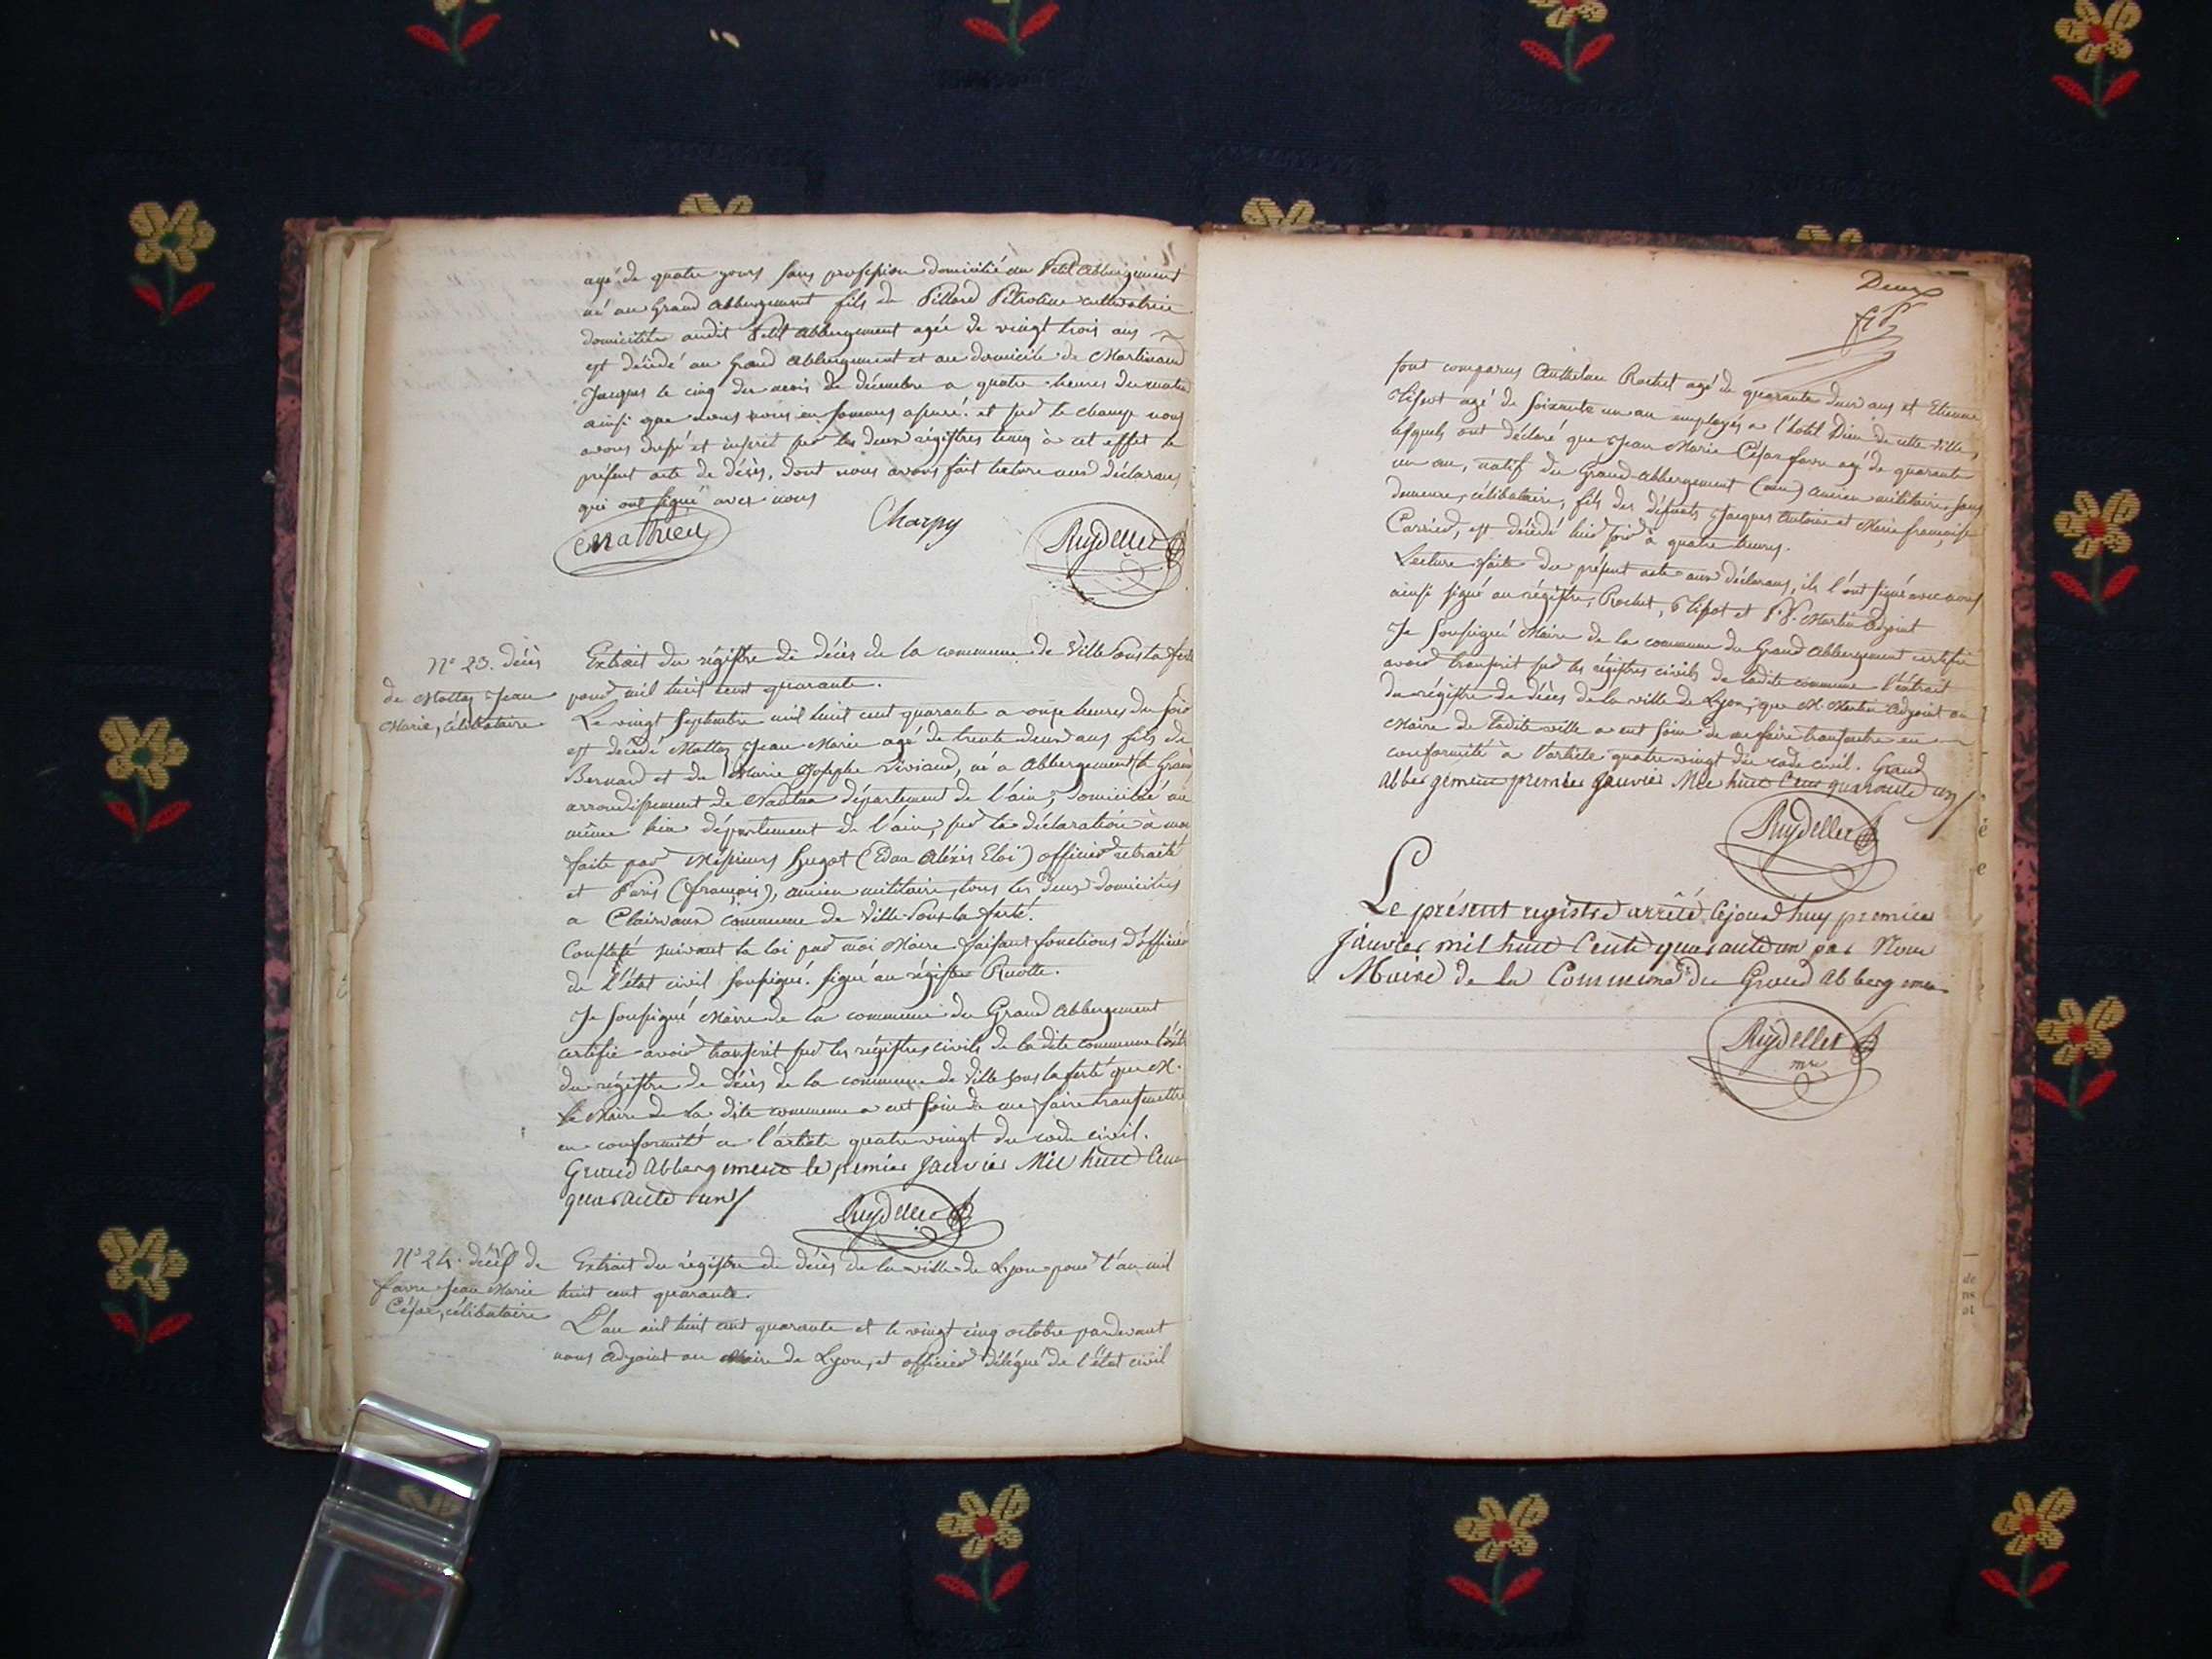 agé de quatre jours sans profession domicilié au Petit Abbergement
né au Grand Abbergement fils de Pillard Pétroline cultivatrice
domiciliée audit Petit Abbergement agée de vingt trois ans
est décédé au Grand Abbergement et au domicile de Martinand
Jacques le cinq du mois de décembre a quatre heures du matin
ainsi que nous nous en sommes assuré. et sur le champ nous
avons dressé et inscrit sur les deux régistres tenus à cet effet le
présent acte de décès, dont nous avons fait lecture aux déclarans
qui ont signé avec nous
Mathieu Charpy Ruydellet
N° 23. décès
de Mattez Jean
Marie, célibataire
Extrait du régistre de décès de la commune de Ville sous la ferté
pour mil huit cent quarante.
Le vingt septembre mil huit cent quarante a onze heures du soir
est décédé Mattez Jean Marie agé de trente deux ans fils de
Bernard et de Marie Josephe Viviand, né a Abbergement le Grand
arrondissement de Nantua département de l'ain, domicilié au
même lieu département de l'ain, sur la déclaration à moi
faite par Messieurs Hugot (Edme Alexis Eloi) officier retraité
et Paris (françois), ancien militaire, tous les deux domiciliés
a Clairvaux commune de Ville sous la ferté.
Constaté suivant la loi par moi Maire faisant fonctions d'officier
de l'état civil soussigné. signé au régistre Ruotte.
Je soussigné Maire de la commune du Grand Abbergement
certifie avoir transcrit sur les régistres civils de la dite commune
du régistre de décès de la commune de Ville sous la ferté que M.
le Maire de la dite commune a eut soin de me faire transmettre
en conformité a l'article quatre vingt du code civil.
Grand Abbergement le premier Janvier Mil huit Cent
quarante un
Ruydellet
N° 24. décès de
favre Jean Marie
César, célibataire
Extrait du régistre de décès de la ville de Lyon pour l'an mil
huit cent quarante.
L'an mil huit cent quarante et le vingt cinq octobre pardevant
nous adjoint au Maire de Lyon, et officier délégué de l'état civil
Deux
sont comparus Anthelme Rochet agé de quarante deux ans et Etienne
agé de soixante un an employés a l'hotel Dieu de cette ville,
lesquels ont déclaré que Jean Marie César favre agé de quarante
un an, natif du Grand-Abbergement (ain) ancien militaire sans
demeure, célibataire, fils des défunts Jacques Antoine et Marie françoise
Carrier, est décédé hier soir à quatre heures.
Lecture faite du présent acte aux déclarans, ils l'ont signé avec nous
ainsi signé au régistre, Rochet, et Martin adjoint
Je soussigné Maire de la commune du Grand Abbergement certifie
avoir transcrit sur les régistres civils de ladite commune l'extrait
du régistre de décès de la ville de Lyon, que M. Martin adjoint au
Maire de ladite ville a eut soin de me faire transmettre en
conformité à l'article quatre vingt du code civil. Grand
Abbergement premier Janvier Mil huit Cent quarante un
Ruydellet
Le présent registre arrêté cejourd'huy premier
Janvier mil huit Cent quarante un par Nous
Maire de la Commune du Grand Abbergement
Ruydellet
mre